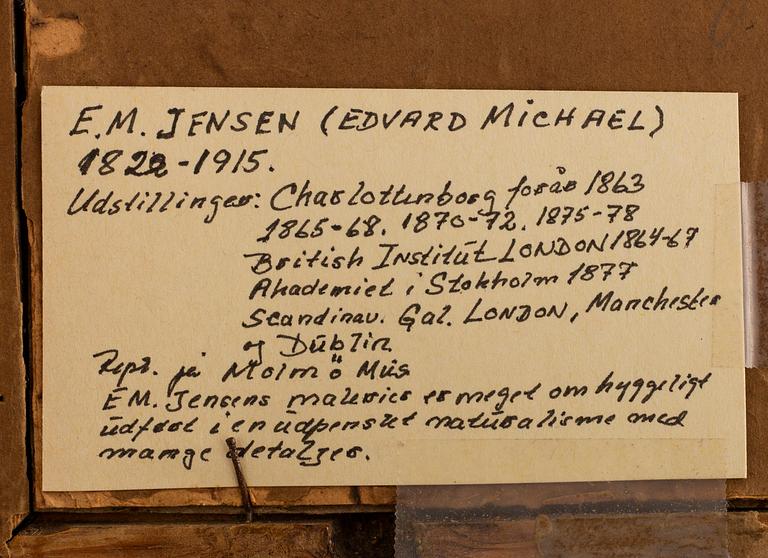 E.M. JENSEN (EDVARD MICHAEL)
1822-1915.
Udstillinger: Charlottenborg forår 1863
1865-68. 1870-72. 1875-78
British Institut LONDON 1864-67
Akademiet i Stokholm 1877
Scandinav. Gal. LONDON, Manchester
og Dublin
Repr. på Malmö Mus
E.M. Jensens malerier er meget omhyggeligt
udført i en udpenslet naturalisme med
mange detaljer.